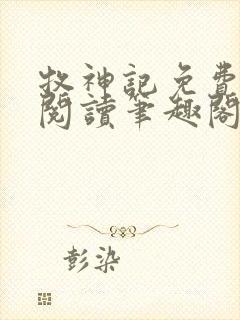 牧神記免費
閱讀筆趣閣
彭染